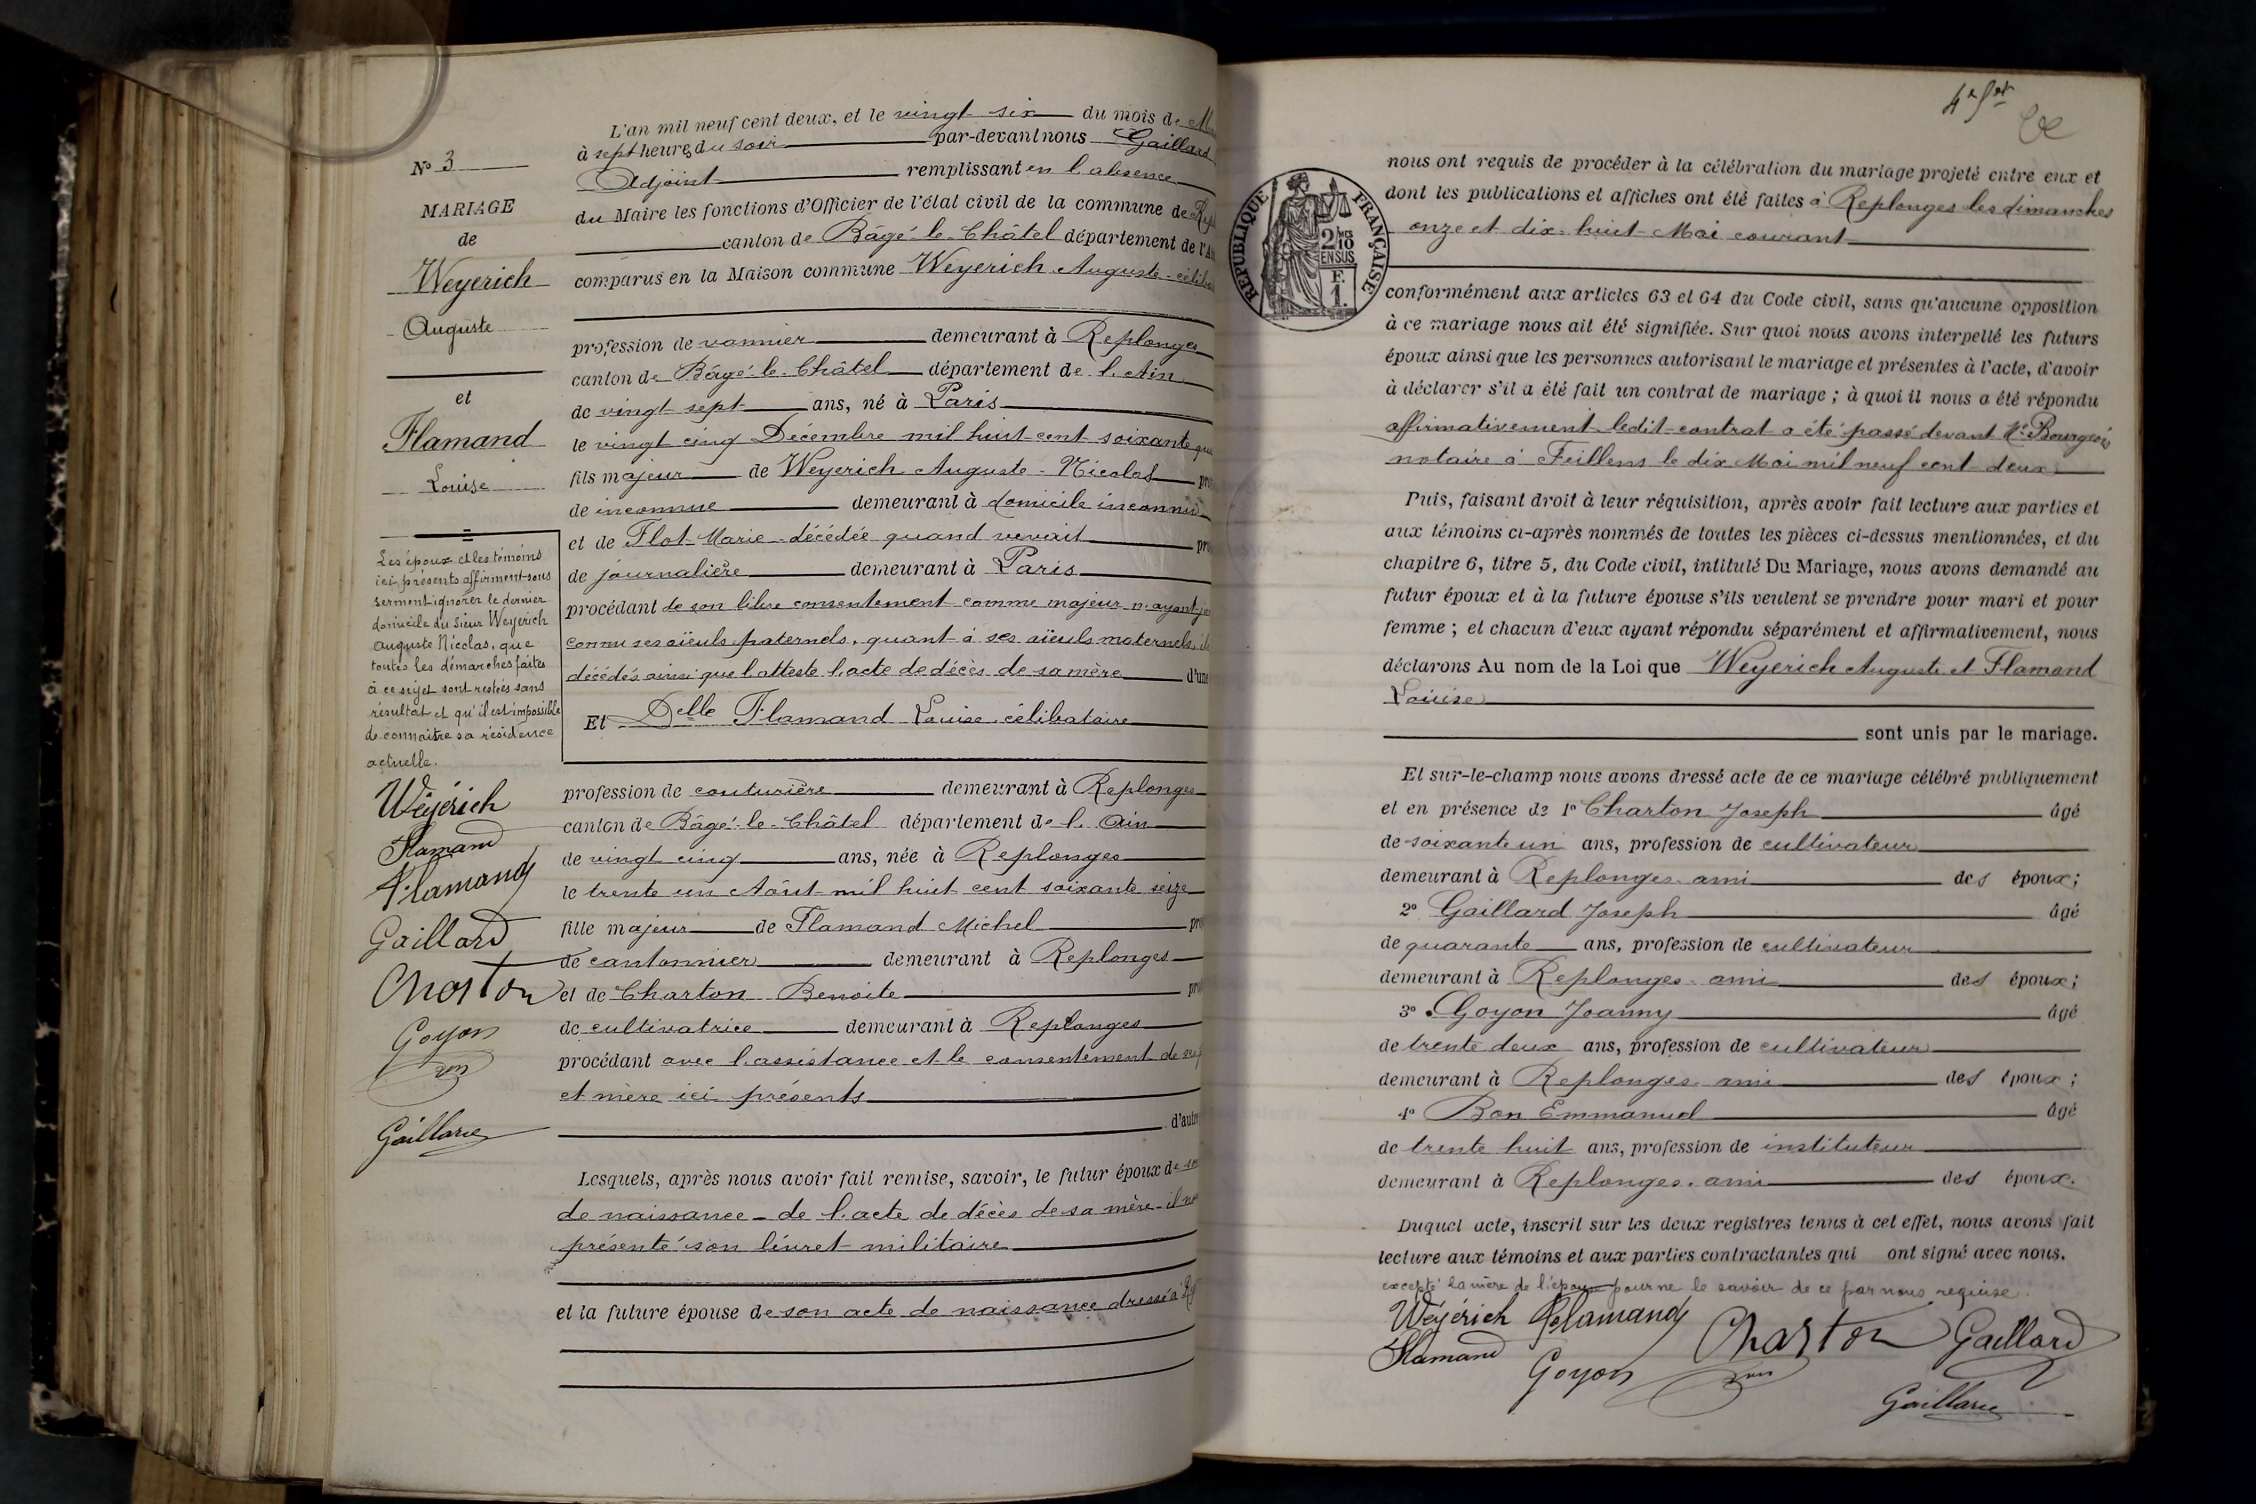 N° 3
MARIAGE
de
Weyerich
Auguste
et
Flamand
Louise
Les époux et les témoins
ici présents affirment sous
serment ignorer le dernier
domicile du Sieur Weyerich
Auguste Nicolas, que
toutes les démarches faites
à ce sujet sont restées sans
résultat et qu'il est impossible
de connaitre sa résidence
actuelle.
Wéyérich
Flamand
Flamand
Gaillard
Charton
Goyon
Gaillard
L'an mil neuf cent deux, et le vingt six du mois de
à sept heures du soir par-devant nous Gaillard
Adjoint remplissant en l'absence
du Maire les fonctions d'Officier de l'état civil de la commune de
canton de Bâgé-le-Châtel département de
comparus en la Maison commune Weyerich Auguste
profession de vannier demeurant à Replonges
canton de Bâgé-le-Châtel département de l'Ain
de vingt sept ans, né à Paris
le vingt cinq Décembre mil huit cent soixante
fils majeur de Weyerich Auguste-Nicolas
de inconnue demeurant à domicile inconnu
et de Flot Marie décédée quand vivait
de journalière demeurant à Paris
procédant de son libre consentement comme majeur n'ayant
connu ses aïeuls paternels, quant à ses aïeuls maternels,
décédés ainsi que l'atteste l'acte de décès de sa mère d'une
Et Delle Flamand Louise célibataire
profession de couturière demeurant à Replonges
canton de Bâgé-le-Châtel département de l'Ain
de vingt cinq ans, née à Replonges
le trente un Août mil huit cent soixante seize
fille majeur de Flamand Michel
de cantonnier demeurant à Replonges
et de Charton Benoite
de cultivatrice demeurant à Replonges
procédant avec l'assistance et le consentement de
et mère ici présents
Lesquels, après nous avoir fait remise, savoir, le futur époux de
de naissance - de l'acte de décès de sa mère - il
présenté son livret militaire
et la future épouse de son acte de naissance dressé à
nous ont requis de procéder à la célébration du mariage projeté entre eux et
dont les publications et affiches ont été faites à Replonges les dimanches
onze et dix-huit Mai courant
RÉPUBLIQUE FRANÇAISE
2/10
EN SUS
F.
1.
conformément aux articles 63 et 64 du Code civil, sans qu'aucune opposition
à ce mariage nous ait été signifiée. Sur quoi nous avons interpellé les futurs
époux ainsi que les personnes autorisant le mariage et présentes à l'acte, d'avoir
à déclarer s'il a été fait un contrat de mariage ; à quoi il nous a été répondu
affirmativement ledit contrat a été passé devant Me Bourgeois
notaire à Feillens le dix Mai mil neuf cent deux
Puis, faisant droit à leur réquisition, après avoir fait lecture aux parties et
aux témoins ci-après nommés de toutes les pièces ci-dessus mentionnées, et du
chapitre 6, titre 5, du Code civil, intitulé Du Mariage, nous avons demandé au
futur époux et à la future épouse s'ils veulent se prendre pour mari et pour
femme ; et chacun d'eux ayant répondu séparément et affirmativement, nous
déclarons Au nom de la Loi que Weyerich Auguste et Flamand
Louise
sont unis par le mariage.
Et sur-le-champ nous avons dressé acte de ce mariage célébré publiquement
et en présence de 1° Charton Joseph âgé
de soixante un ans, profession de cultivateur
demeurant à Replonges ami des époux ;
2° Gaillard Joseph âgé
de quarante ans, profession de cultivateur
demeurant à Replonges ami des époux ;
3° Goyon Joanny âgé
de trente deux ans, profession de cultivateur
demeurant à Replonges ami des époux ;
4° Bon Emmanuel âgé
de trente huit ans, profession de instituteur
demeurant à Replonges ami des époux.
Duquel acte, inscrit sur les deux registres tenus à cet effet, nous avons fait
lecture aux témoins et aux parties contractantes qui ont signé avec nous.
excepté la mère de l'épouse pour ne le savoir de ce par nous requise.
Wéyérich Flamand Charton Gaillard
Flamand Goyon Bon
Gaillard